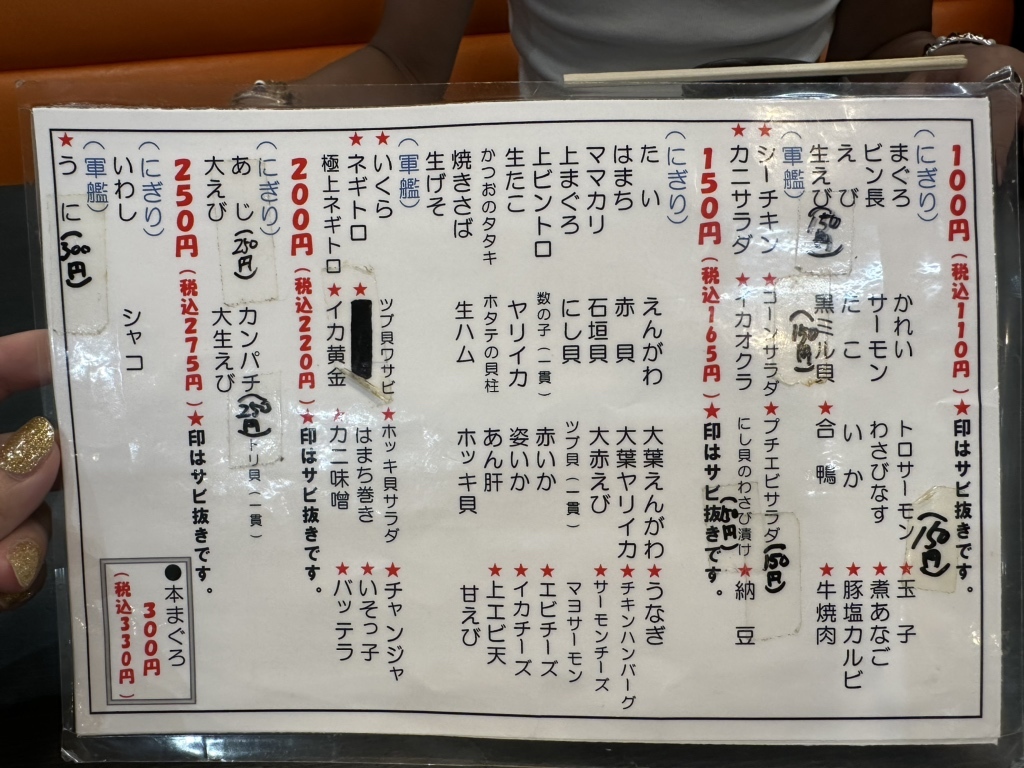 100円(税込110円)★印はサビ抜きです。
(にぎり)
まぐろ かれい トロサーモン(150円) ★玉子
ビン長 サーモン わさびなす ★煮あなご
えび たこ いか ★豚塩カルビ
生えび(150円) 黒ミル貝(150円) ★合鴨 ★牛焼肉
(軍艦)
★シーチキン ★コーンサラダ ★プチエビサラダ(150円)
★カニサラダ ★イカオクラ にし貝のわさび漬け(150円) ★納豆
150円(税込165円)★印はサビ抜きです。
(にぎり)
たい えんがわ 大葉えんがわ ★うなぎ
はまち 赤貝 大葉ヤリイカ ★チキンハンバーグ
ママカリ 石垣貝 大赤えび ★サーモンチーズ
上まぐろ にし貝 ツブ貝(一貫) マヨサーモン
上ビントロ 数の子(一貫) 赤いか ★エビチーズ
生たこ ヤリイカ 姿いか ★イカチーズ
かつおのタタキ ホタテの貝柱 あん肝 ★上エビ天
焼きさば 生ハム ホッキ貝 甘えび
生げそ
(軍艦)
★いくら ツブ貝ワサビ ★ホッキ貝サラダ ★チャンジャ
★ネギトロ ★ はまち巻き ★いそっ子
極上ネギトロ ★イカ黄金 ★カニ味噌 ★バッテラ
200円(税込220円)★印はサビ抜きです。
(にぎり)
あじ(250円) カンパチ(250円) トリ貝(一貫)
大えび 大生えび
250円(税込275円)★印はサビ抜きです。
(にぎり)
いわし シャコ
(軍艦)
★うに(300円)
●本まぐろ
300円
(税込330円)